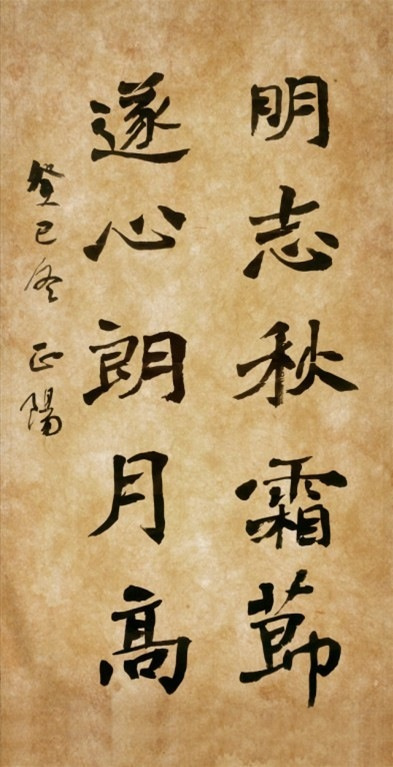 明志秋霜節
遂心朗月高
癸巳冬 正陽